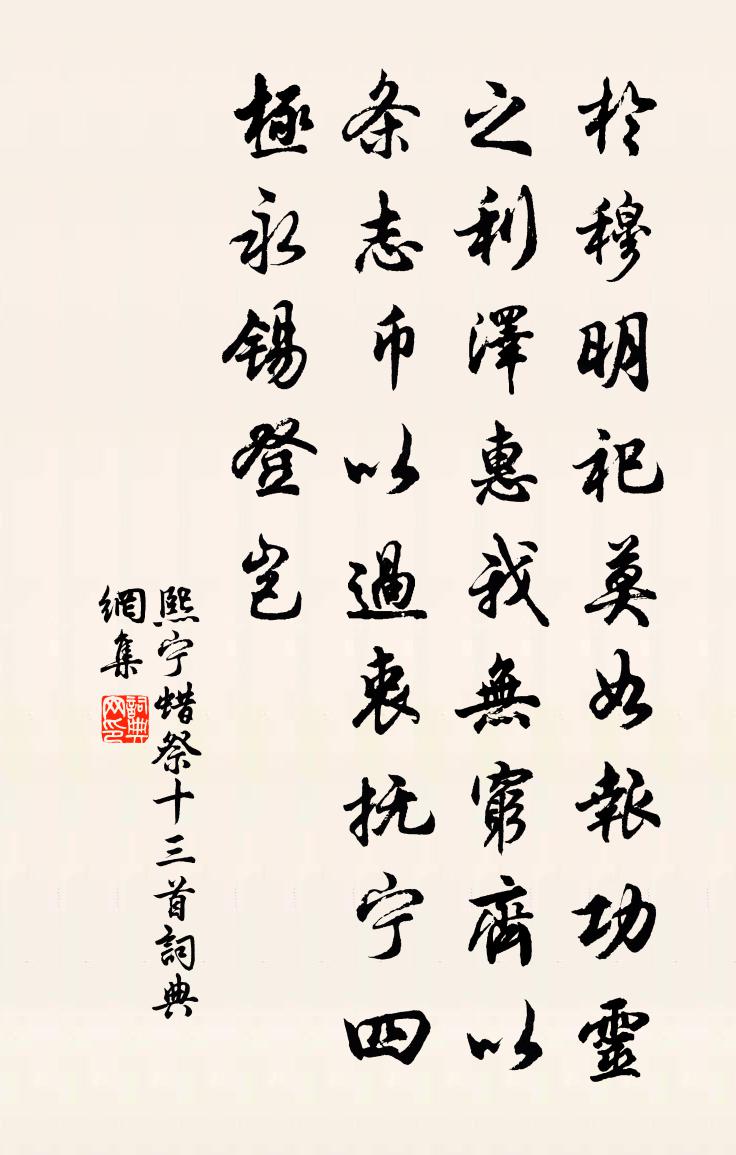 於穆明祀莫如報功靈
之利澤惠我無窮齊以
条志币以過衷抚宁四
極永錫登岂
熙宁蜡祭十三首詞典
網集
詞典
网印